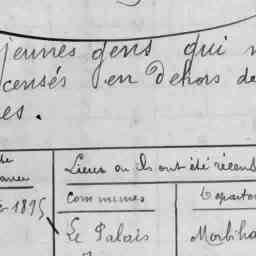 jeunes gens qui
censés en dehors de
es.
de Lieux où ils ont été recens
Communes Départ
1895 Le Palais Morbiha